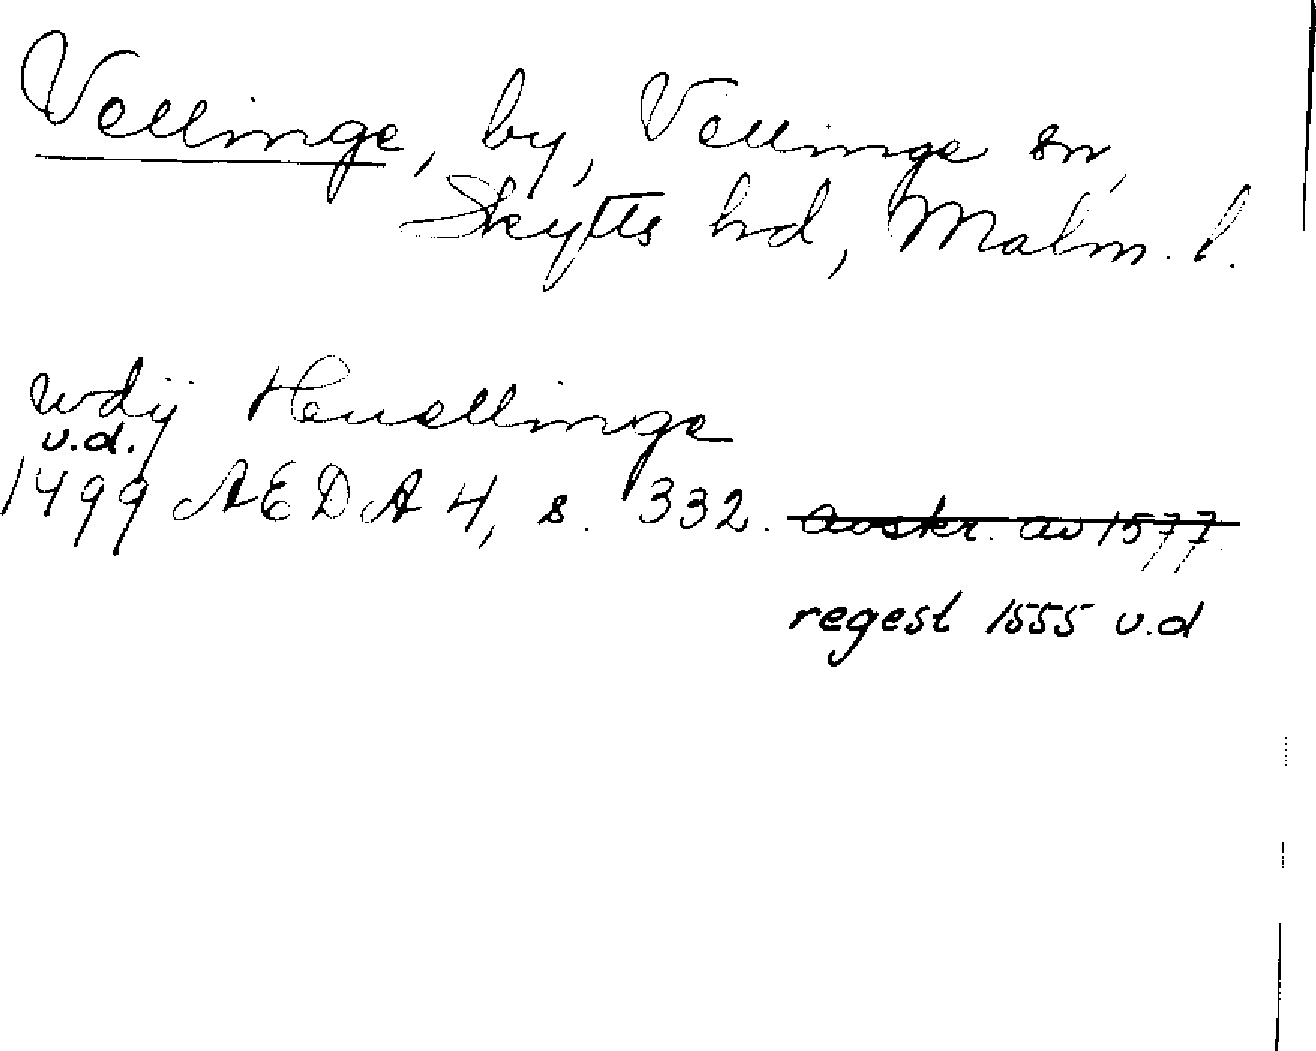 Vellinge, by, Vellinge sn,
Skytts hd, Malm. l.
wdij Heuellinge
u.d.
1499 AEDA 4, s. 332. avskr. av 1577
regest 1555 u.d